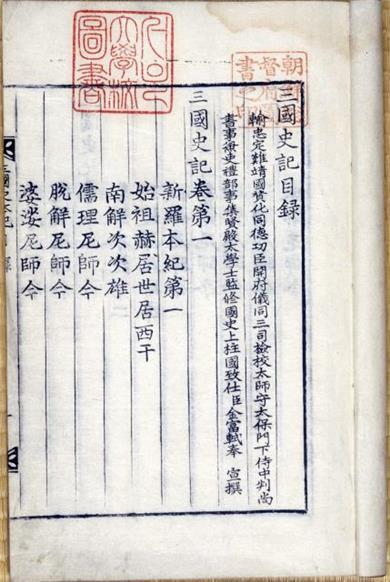 朝鮮總
督府圖
書之印
大學校
圖書
三國史記目錄
輸忠定難靖國贊化同德功臣開府儀同三司檢校太師守太保門下侍中判尚
書事兼吏禮部事集賢殿太學士監修國史上柱國致仕臣金富軾奉 宣撰
三國史記卷第一
新羅本紀第一
始祖赫居世居西干
南解次次雄
儒理尼師今
脫解尼師今
婆娑尼師今